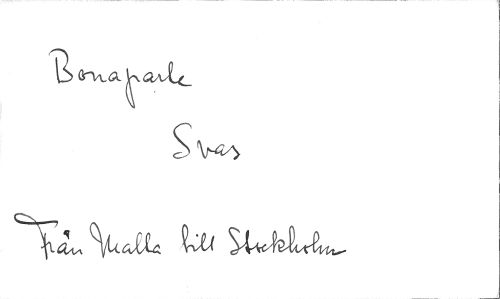 Bonaparte
Svas
Från Malta till Stockholm